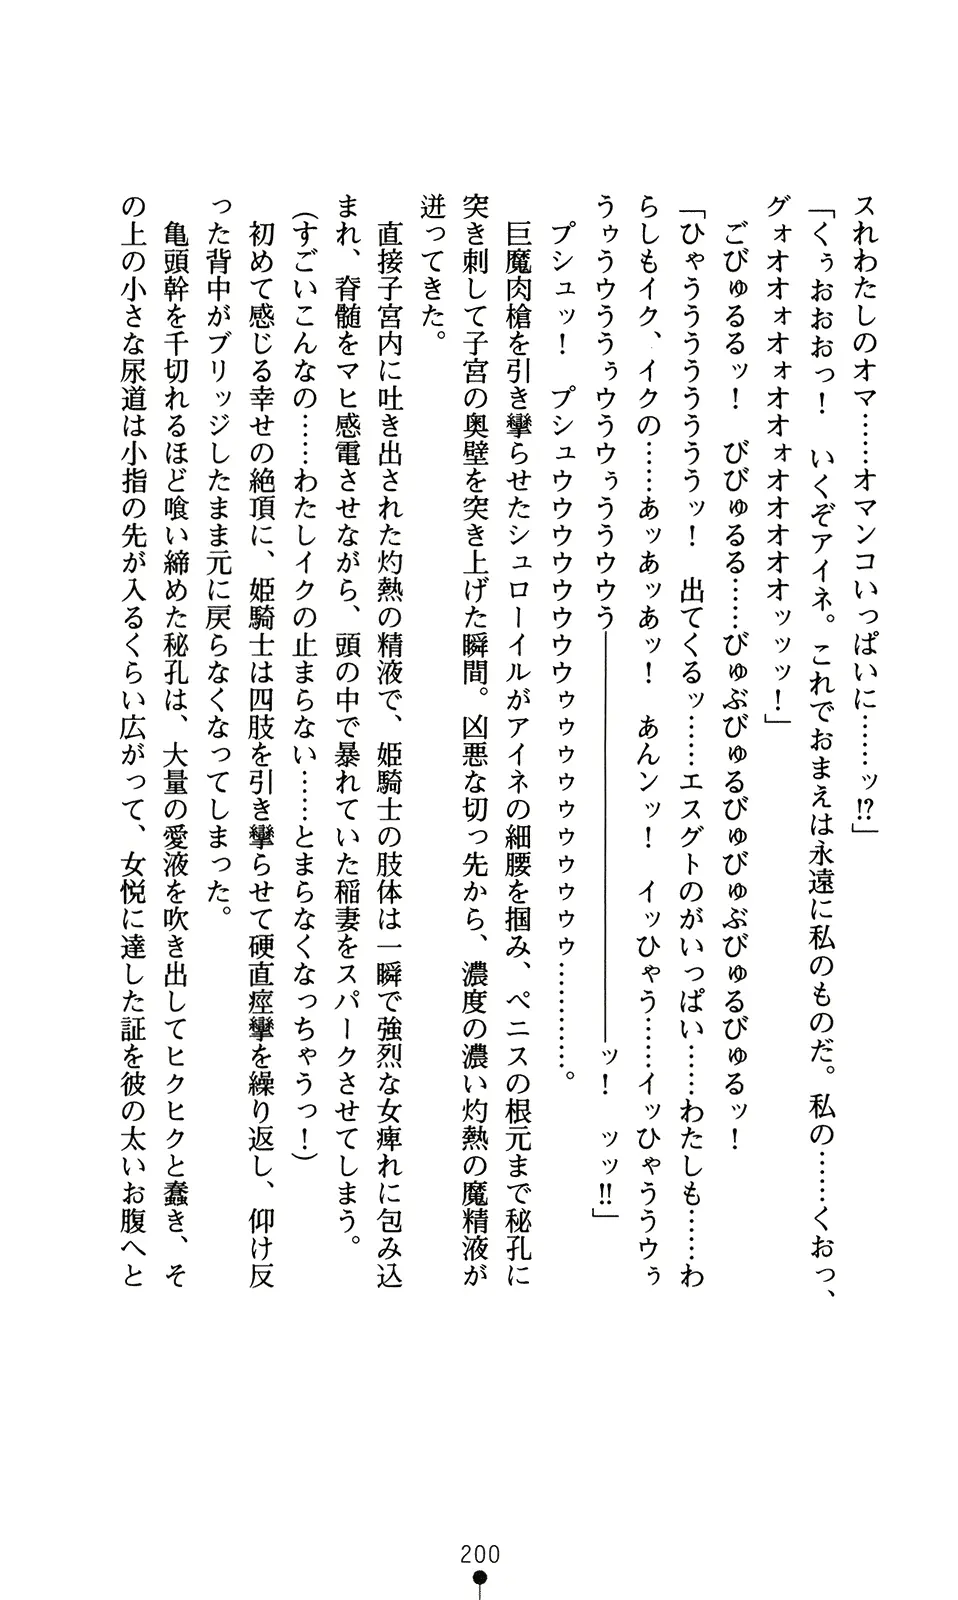 スれわたしのオマ……オマンコいっぱいに……ッ!?」
「くぅおおおっ！　いくぞアイネ。これでおまえは永遠に私のものだ。私の……くおっ、
グォオオォオォオオォオオオオッッッ！」
　ごびゅるるッ！　びびゅるる……びゅぶびゅるびゅびゅぶびゅるびゅるッ！
「ひゃうううううううッ！　出てくるッ……エスグトのがいっぱい……わたしも……わ
らしもイク、イクの……あッあッあッ！　あんンッ！　イッひゃう……イッひゃううウぅ
うぅうウううぅウうウぅううウウう――――――――――ッ！　ッッ!!」
　プシュッ！　プシュウウウウウウウウゥゥゥゥゥゥゥゥ…………。
　巨魔肉槍を引き攣らせたシュローイルがアイネの細腰を掴み、ペニスの根元まで秘孔に
突き刺して子宮の奥壁を突き上げた瞬間。凶悪な切っ先から、濃度の濃い灼熱の魔精液が
迸ってきた。
　直接子宮内に吐き出された灼熱の精液で、姫騎士の肢体は一瞬で強烈な女痺れに包み込
まれ、脊髄をマヒ感電させながら、頭の中で暴れていた稲妻をスパークさせてしまう。
(すごいこんなの……わたしイクの止まらない……とまらなくなっちゃうっ！)
　初めて感じる幸せの絶頂に、姫騎士は四肢を引き攣らせて硬直痙攣を繰り返し、仰け反
った背中がブリッジしたまま元に戻らなくなってしまった。
　亀頭幹を千切れるほど喰い締めた秘孔は、大量の愛液を吹き出してヒクヒクと蠢き、そ
の上の小さな尿道は小指の先が入るくらい広がって、女悦に達した証を彼の太いお腹へと
200